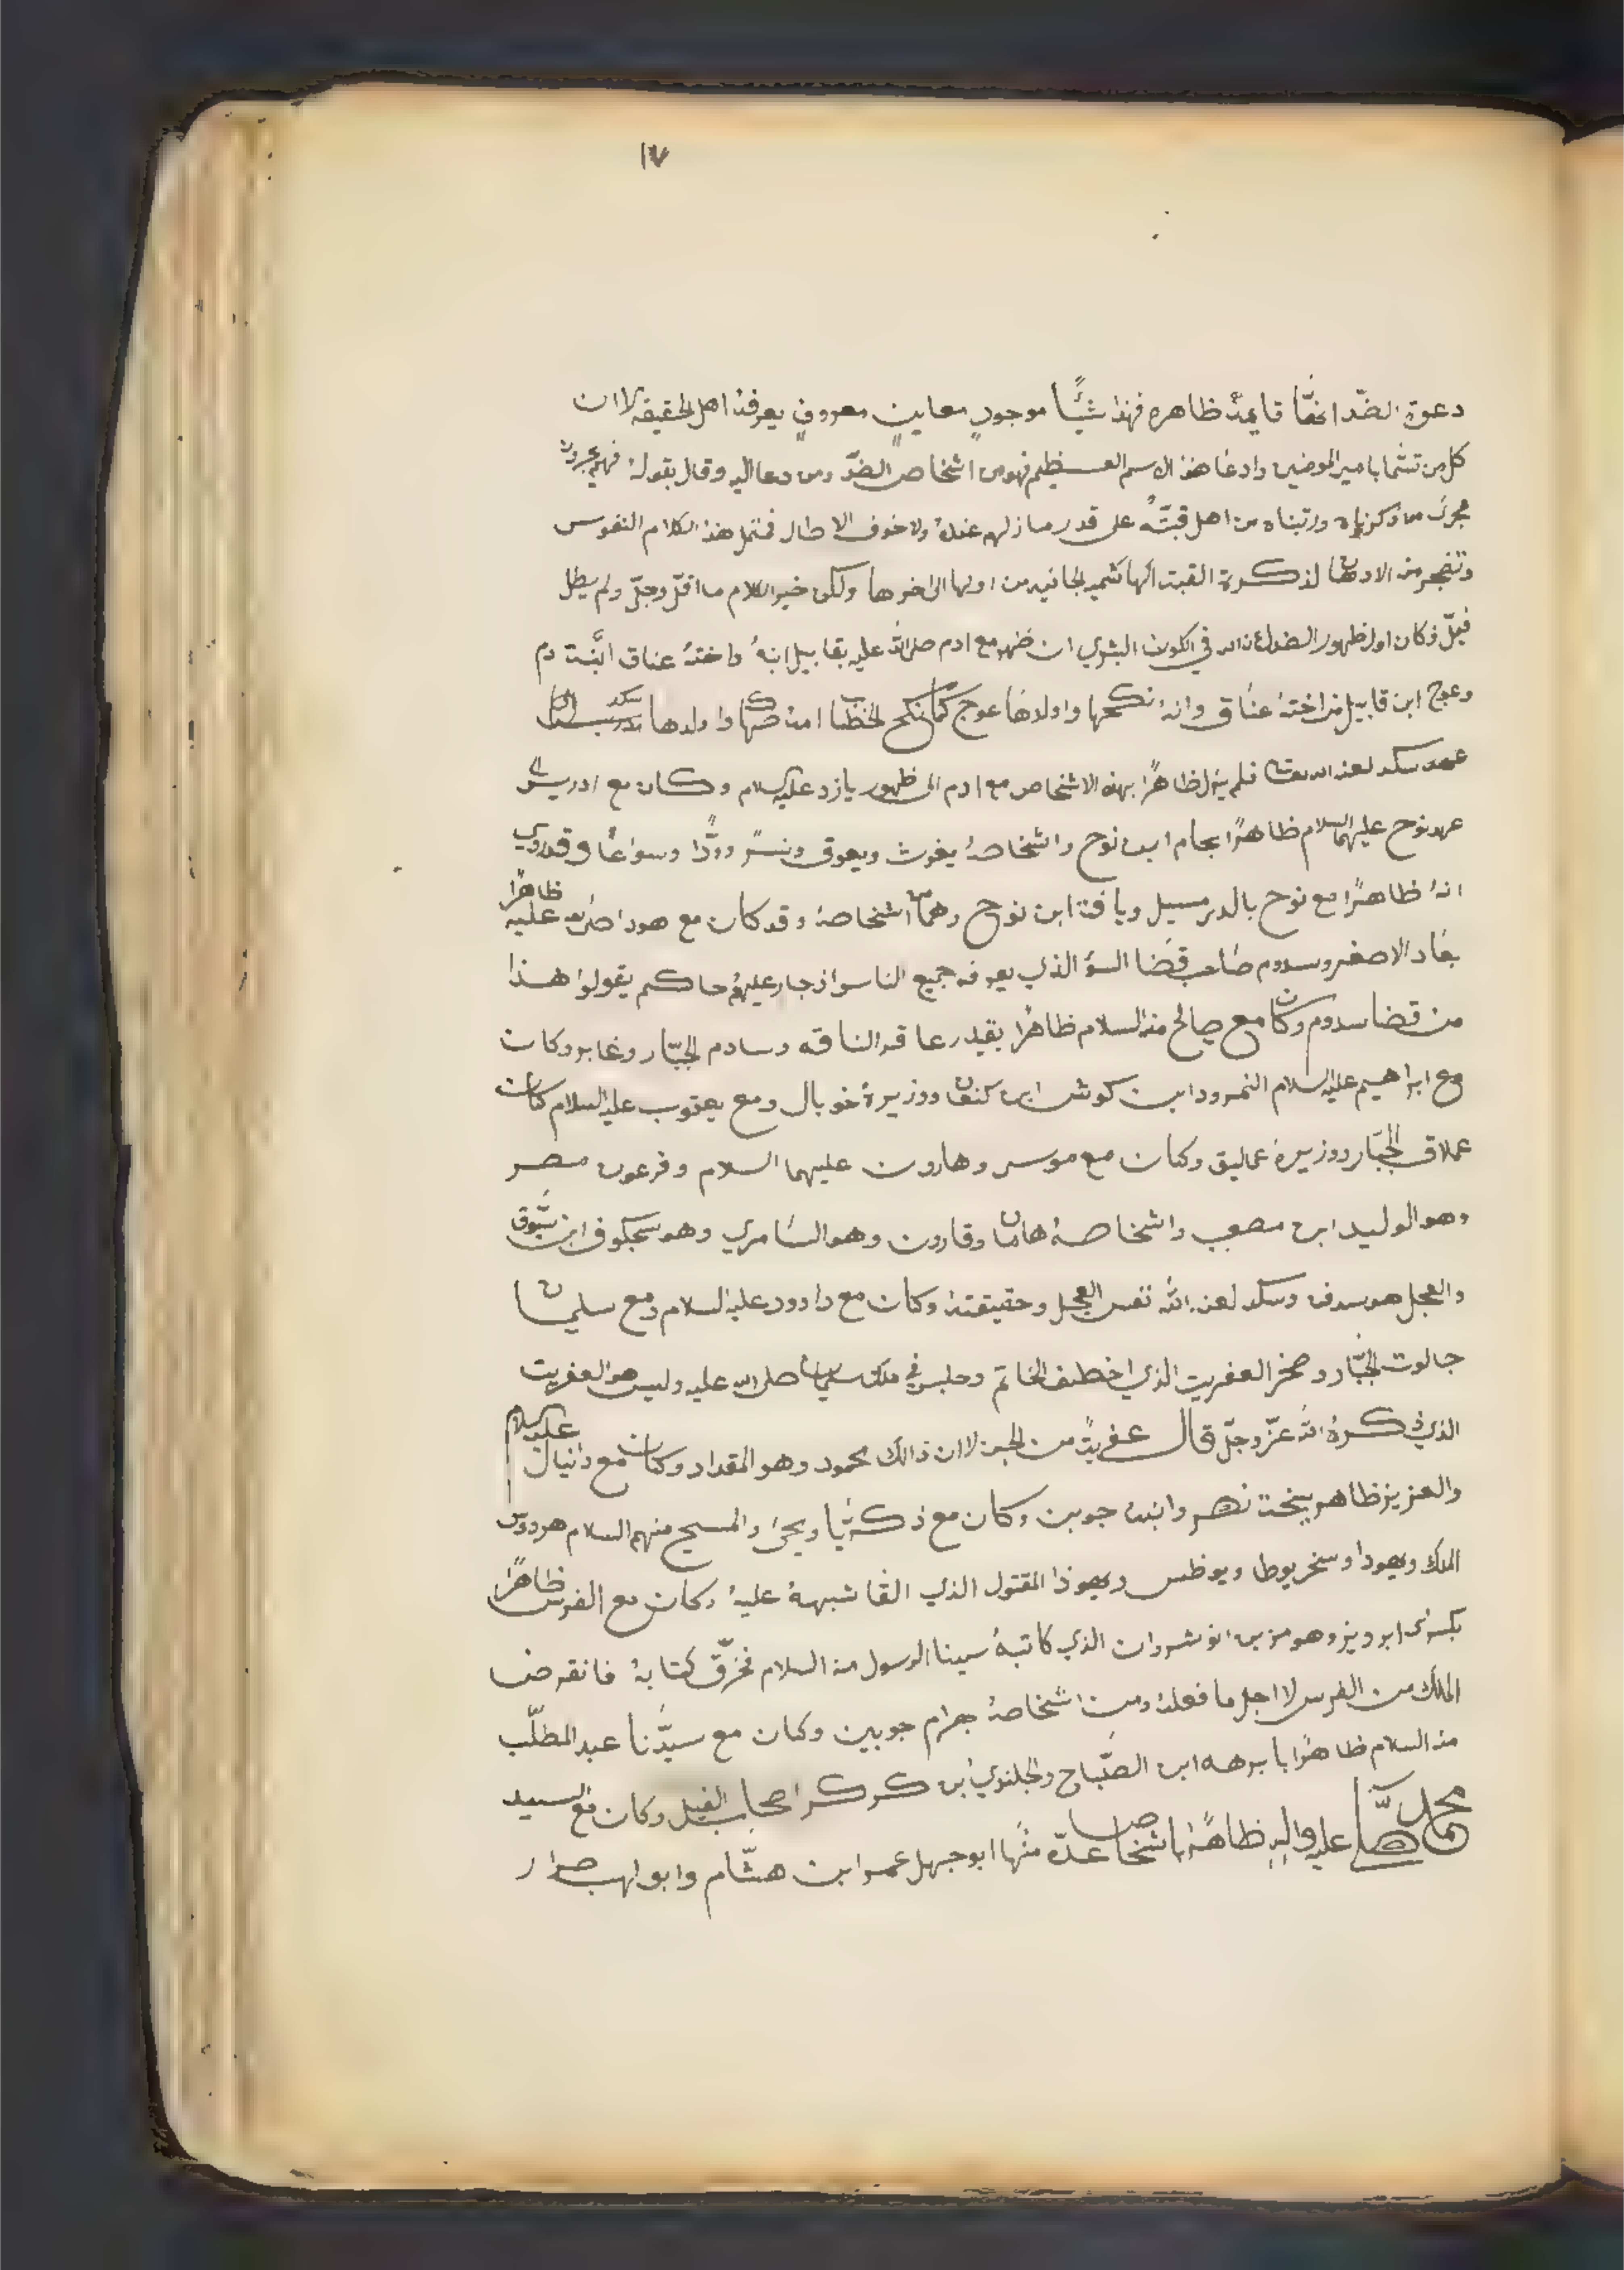 ١٧
دعوة الضد انهّا قايمة ظاهره فهذا شيئًا موجودٍ معاينٍ معروفٍ يعرفهُ اهل الحقيقه لاان
كل من تسّما بامير المومنين وادعا هذا الاسم العظيم فهو من اشخاص الضدّ ومن دعا اليه وقال بقولهُ فهم يجرون
مجرى من ذكرناه ورتبناه من اهل قبتّهُ على قدر منازلهم عندهُ ولا خوف الاطال فتمل هذا الكلام النفوس
وتضجر منه الادهان لذكرة القبت الهاشميه الجانيه من اولها الى اخرها ولكن خير الكلام ما اقلّ وجلّ ولم يطل
فيملّ فكان اول ظهور الضد لعنه الله في الكون البشري ان ظهر مع ادم صلى الله عليه بقابيل ابنهُ واختهُ عناق ابنَّت دم
وعوج ابن قابيل من اختهُ عناق وانهُ نكحها واولدها عوج كما نكح الخطّاب امهُ ضهاك واولدها
عمر سكد لعنه الله تعالى فلم يزل ظاهرًا بهذه الاشخاص مع ادم الى ظهور يازد عليه السلام وكان مع ادريس الى
عهد نوح عليهما السلام ظاهرًا بحام ابن نوح واشخاصهُ يغوث ويعوق ونسرً وودًّا وسواعًا وقد روي
انهُ ظاهرًا مع نوح بالدرمسيل ويافت ابن نوح وهما من اشخاصهُ وقد كان مع هود صلى الله عليه ظاهرًا
بعاد الاصغر وسدوم صاحب قضا السؤ الذي يعرفه جميع الناس واذ جار عليهُم حاكم يقولوا هذا
من قضا سدوم وكان مع صالح منه السلام ظاهرًا بقيدر عاقر الناقه وسادم الجبّار وغابر وكان
مع ابراهيم عليه السلام النمرود ابن كوش ابن كنعان ووزيرهُ خوبال ومع يعقوب عليه السلام كان
عملاق الجبّار ووزيرهُ عماليق وكان مع موسى وهارون عليهما السلام وفرعون مصر
وهو الوليد ابن مصعب واشخاصهُ هامان وقارون وهو السامري وهو سجكوف ابن شبوق
والعجل هو سدف وسكد لعنه اللّه نفس العجل وحقيقتهُ وكان مع داوود عليه السلام ومع سليمان
جالوت الجبّار وصخر العفريت الذي اخطف الخاتم وجلس في ملك سليمان صلى الله عليه وليس هو العفريت
الذي ذكرهُ اللّه عزّ وجلّ قال عفريتً من الجن لاان ذالك محمود وهو المقداد وكان مع دانيال عليه السلام
والعزيز ظاهر ببخت نصر وابنه جوبين وكان مع ذكريّا ويحيى والمسيح منهم السلام هردوس
الملك ويهودا وسخريوطا ويوظس ويهوذا المقتول الذي القا شبههُ عليهُ وكان مع الفرس ظاهرًا
بكسرى ابرويز وهو مز بن انوشروان الذي كاتبهُ سيدنا الرسول منه السلام فخرّق كتابهُ فانقرضا
الملك من الفرس لااجل ما فعلهُ ومن اشخاصهُ بهرام جوبين وكان مع سيدّنا عبد المطلّب
منه السلام ظاهرًا بابرهه ابن الصّباح والجلندي ابن كركر اصحاب الفيل وكان مع السيد
محمد صلى الله عليه واله ظاهرًا باشخاصا عدّه منّها ابو جهل عمر ابن هشّام وابو لهب